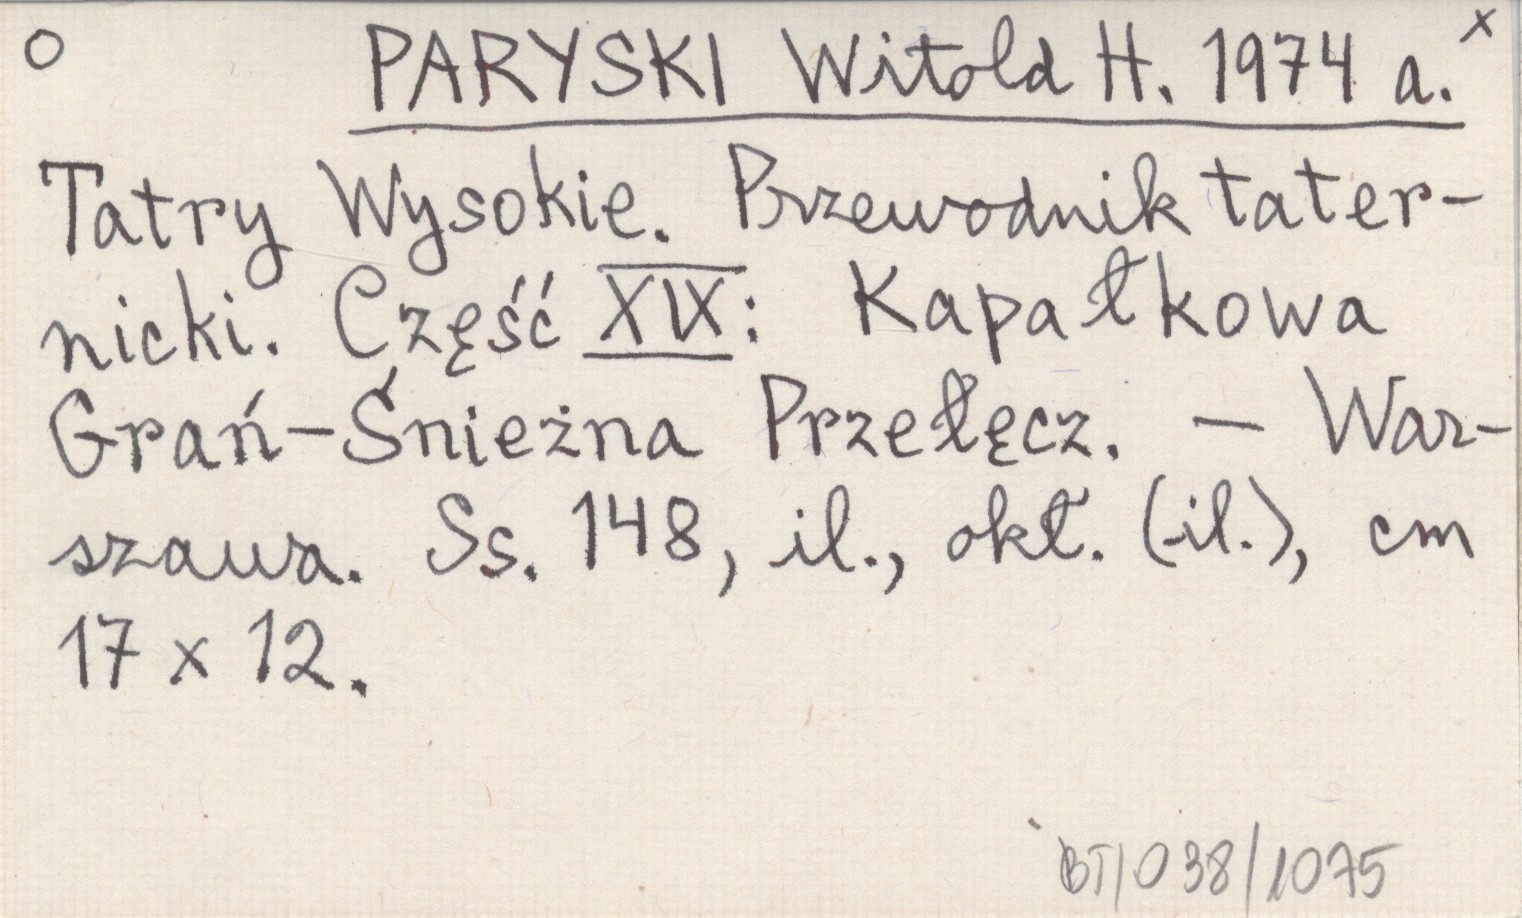 o PARYSKI Witold H. 1974 a. x
Tatry Wysokie. Przewodnik tater-
nicki. Część XIX: Kapałkowa
Grań-Śnieżna Przełęcz. — War-
szawa. Ss. 148, il., okł. (il.), cm
17 x 12.
BT/038/1075